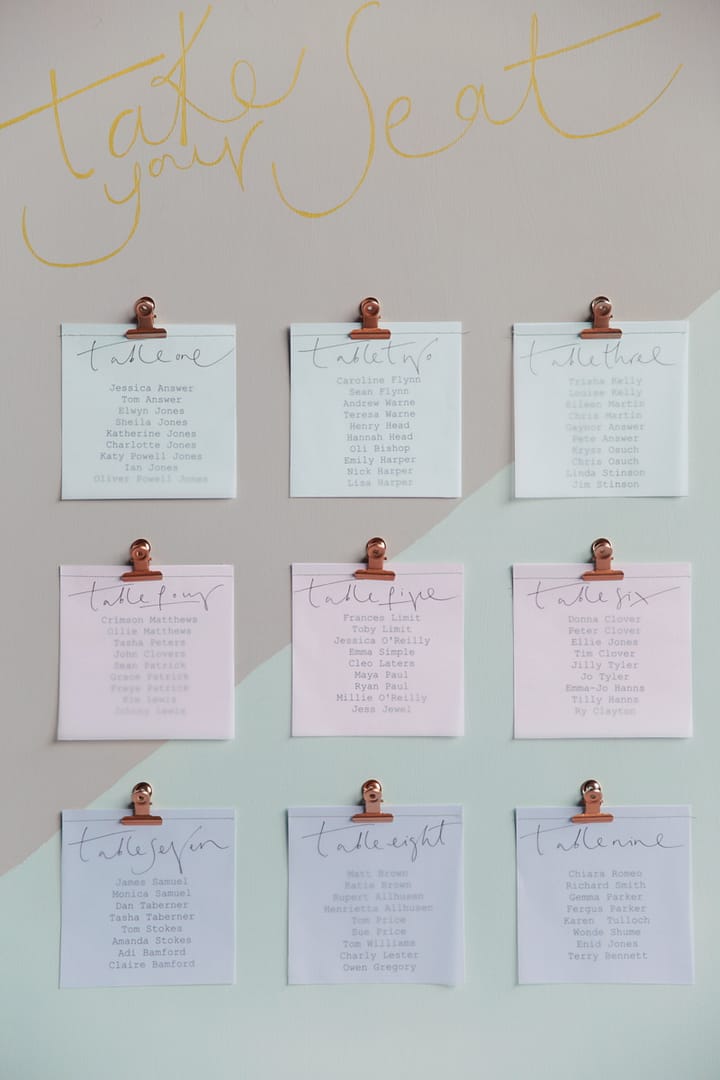 take
your Seat
table one
Jessica Answer
Tom Answer
Elwyn Jones
Sheila Jones
Katherine Jones
Charlotte Jones
Katy Powell Jones
Ian Jones
Oliver Powell Jones
table two
Caroline Flynn
Sean Flynn
Andrew Warne
Teresa Warne
Henry Head
Hannah Head
Oli Bishop
Emily Harper
Nick Harper
Lisa Harper
table three
Trisha Kelly
Louise Kelly
Eileen Martin
Chris Martin
Gaynor Answer
Pete Answer
Kryss Osuch
Chris Osuch
Linda Stinson
Jim Stinson
table four
Crimson Matthews
Ollie Matthews
Tasha Peters
John Clovers
Sean Patrick
Grace Patrick
Freya Patrick
Kim Lewis
Johnny Lewis
table five
Frances Limit
Toby Limit
Jessica O'Reilly
Emma Simple
Cleo Laters
Maya Paul
Ryan Paul
Millie O'Reilly
Jess Jewel
table six
Donna Clover
Peter Clover
Ellie Jones
Tim Clover
Jilly Tyler
Jo Tyler
Emma-Jo Hanns
Tilly Hanns
Ry Clayton
table seven
James Samuel
Monica Samuel
Dan Taberner
Tasha Taberner
Tom Stokes
Amanda Stokes
Adi Bamford
Claire Bamford
table eight
Matt Brown
Katie Brown
Rupert Allhusen
Henrietta Allhusen
Tom Price
Sue Price
Tom Williams
Charly Lester
Owen Gregory
table nine
Chiara Romeo
Richard Smith
Gemma Parker
Fergus Parker
Karen Tulloch
Wonde Shume
Enid Jones
Terry Bennett